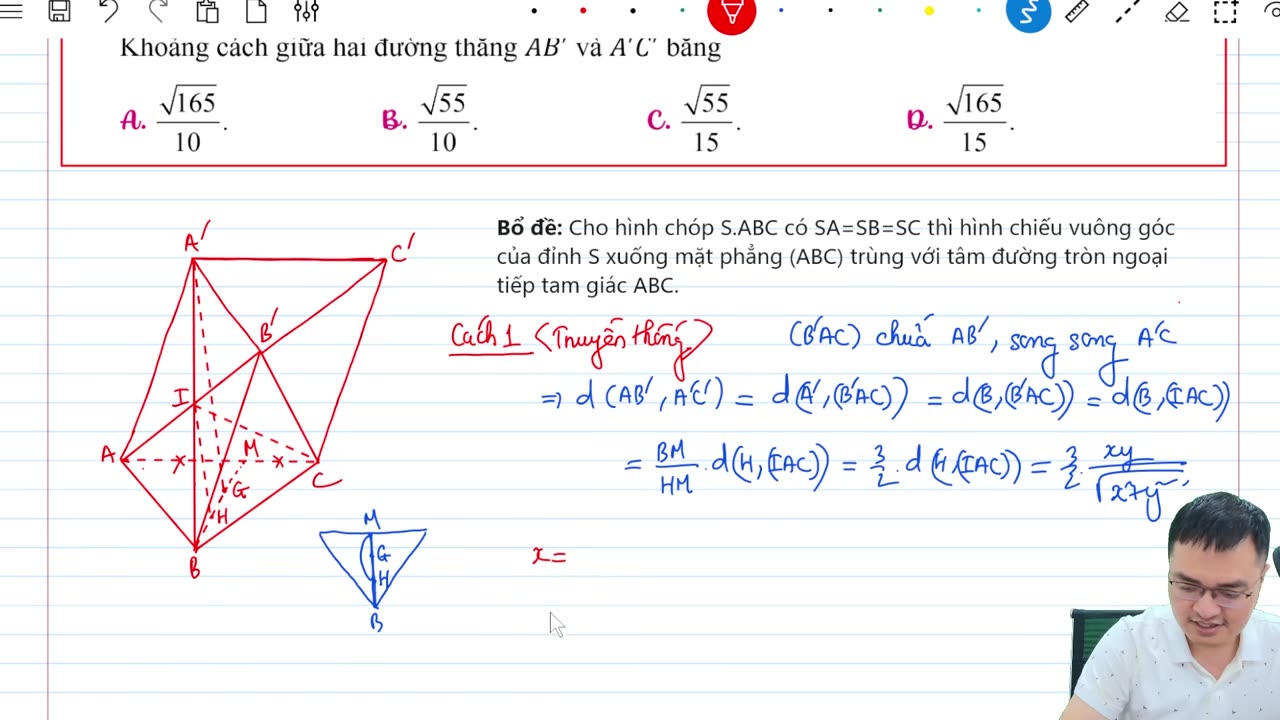 Khoảng cách giữa hai đường thẳng AB' và A'C' bằng
A. √165/10. B. √55/10. C. √55/15. D. √165/15.
Bổ đề: Cho hình chóp S.ABC có SA=SB=SC thì hình chiếu vuông góc
của đỉnh S xuống mặt phẳng (ABC) trùng với tâm đường tròn ngoại
tiếp tam giác ABC.
Cách 1 <Truyền thống> (B'AC) chứa AB', song song A'C
⇒ d(AB', A'C') = d(A', (B'AC)) = d(B, (B'AC)) = d(B, (IAC))
= BM/HM . d(H, (IAC)) = 3/2 . d(H, (IAC)) = 3/2 . xy/√x²+y²
x =
A'
C'
B'
I
A
M
C
G
H
B
M
G
H
B